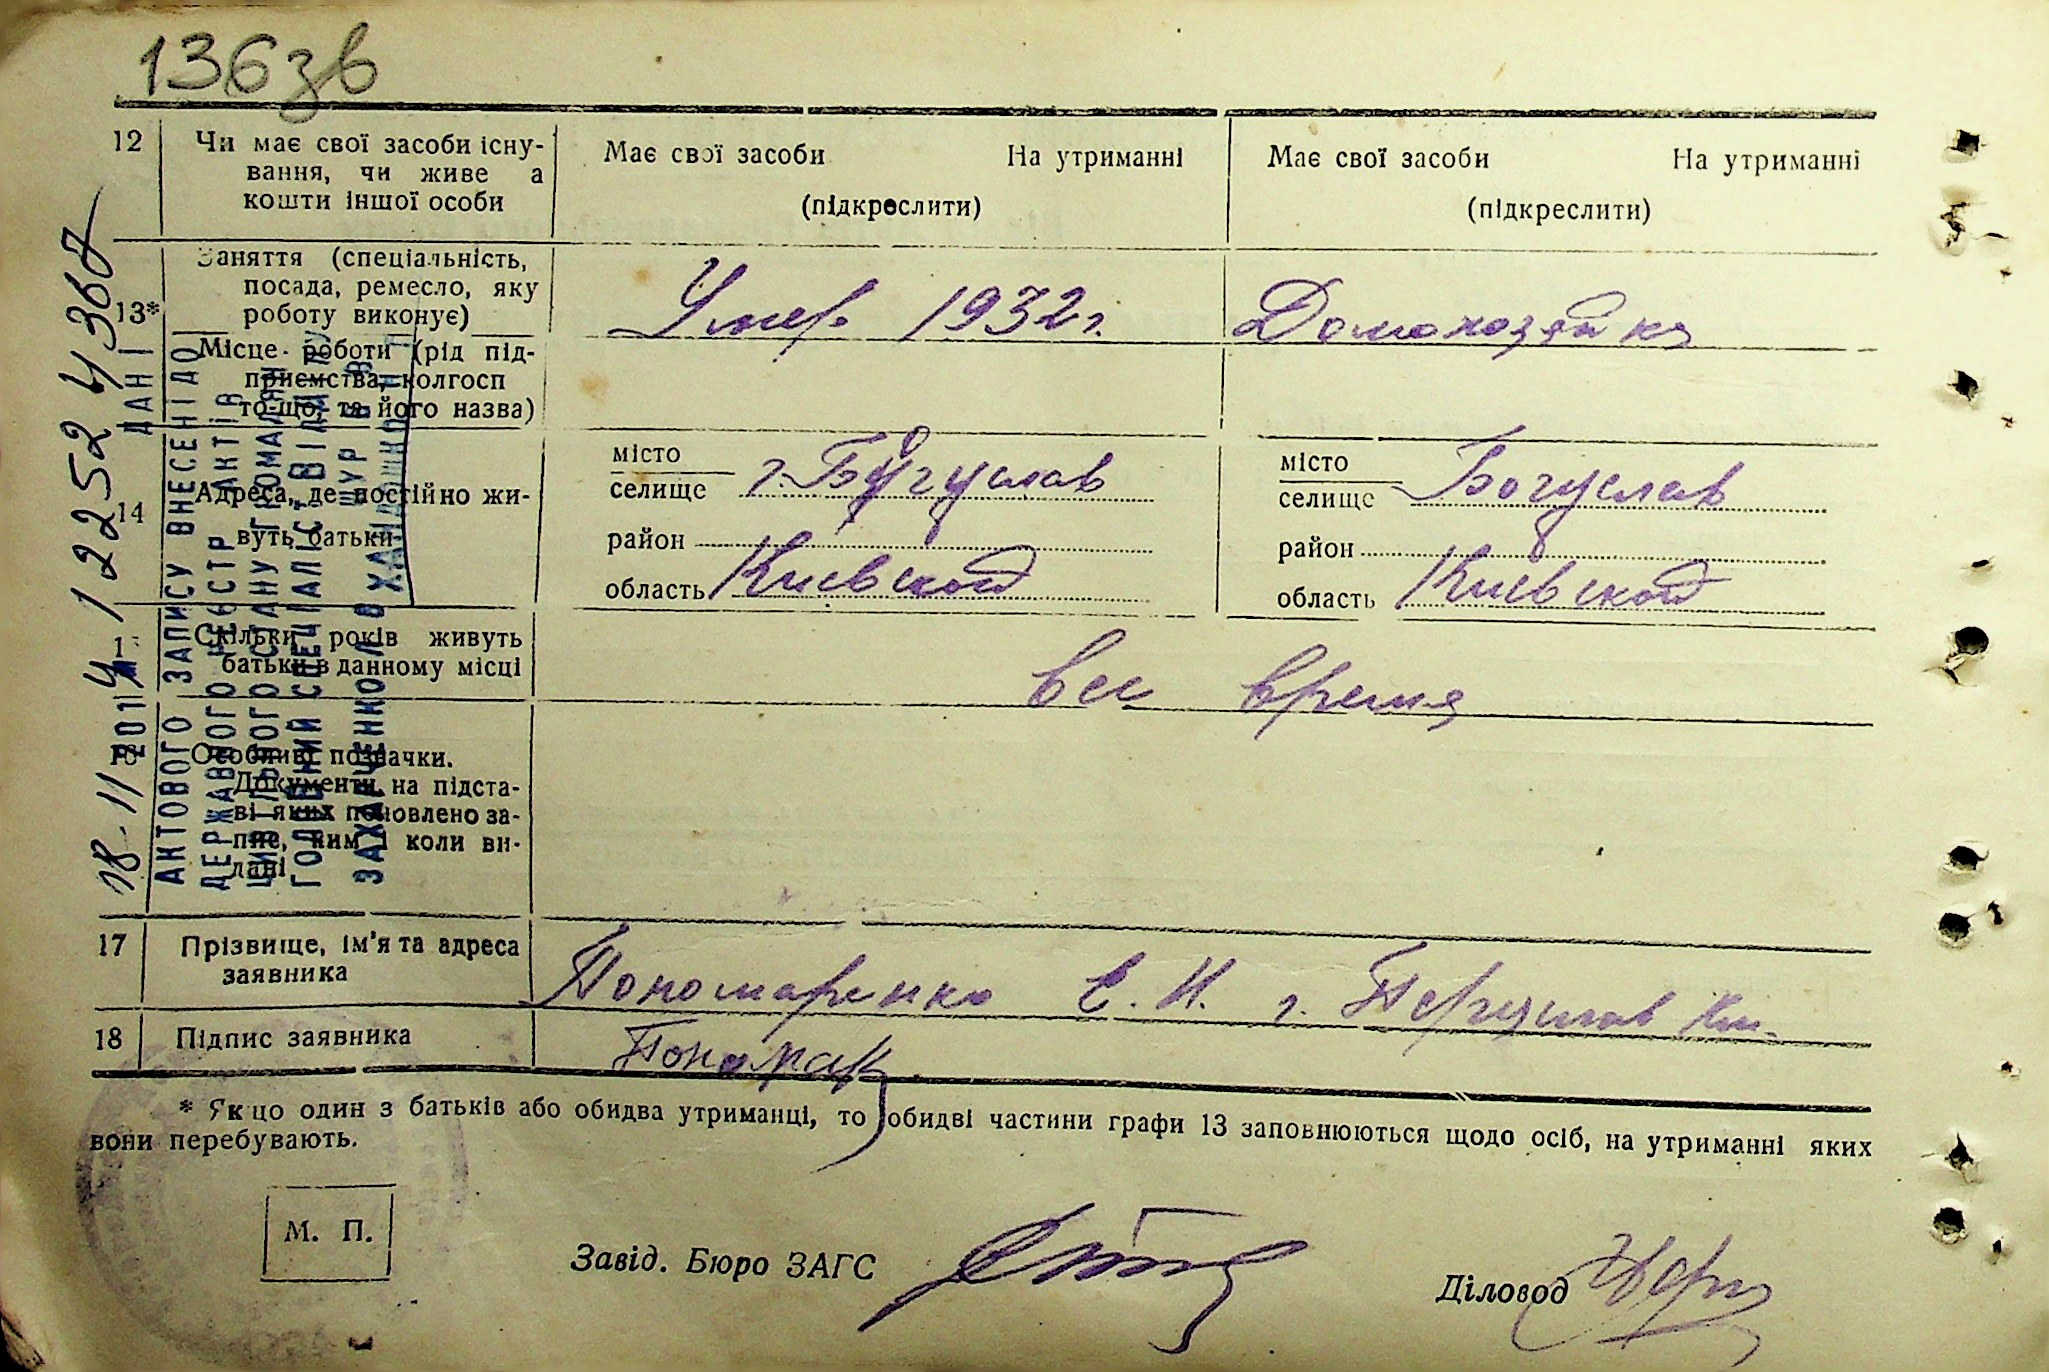 136зв
12 Чи має свої засоби існу- Має свої засоби На утриманні Має свої засоби На утриманні
вання, чи живе а
кошти іншої особи (підкреслити) (підкреслити)
Заняття (спеціальність,
посада, ремесло, яку
13* роботу виконує) Умер 1932 г. Домохозяйка
Місце роботи (рід під-
приємства, колгосп
то-що, та його назва)
місто г. Богуслав місто Богуслав
селище селище
14 Адреса, де постійно жи-
вуть батьки район район
область Киевской область Киевской
Скільки років живуть
батьки в данному місці все время
16 Особливі позначки.
Документи, на підста-
ві яких поновлено за-
пис, ким і коли ви-
дані
17 Прізвище, ім'я та адреса
заявника Пономаренко Е. И. г.
18 Підпис заявника
* Якщо один з батьків або обидва утриманці, то обидві частини графи 13 заповнюються щодо осіб, на утриманні яких
вони перебувають.
М. П.
Завід. Бюро ЗАГС
Діловод
18-11 2014 122524367
ДАНІ
АКТОВОГО ЗАПИСУ ВНЕСЕНІ ДО
ДЕРЖАВНОГО РЕЄСТР АКТІВ
ЦИВІЛЬНОГО СТАНУ ГРОМАДЯН
ГОЛОВНИЙ СПЕЦІАЛІСТ ВІДДІЛУ
ЗАХАРЧЕНКО